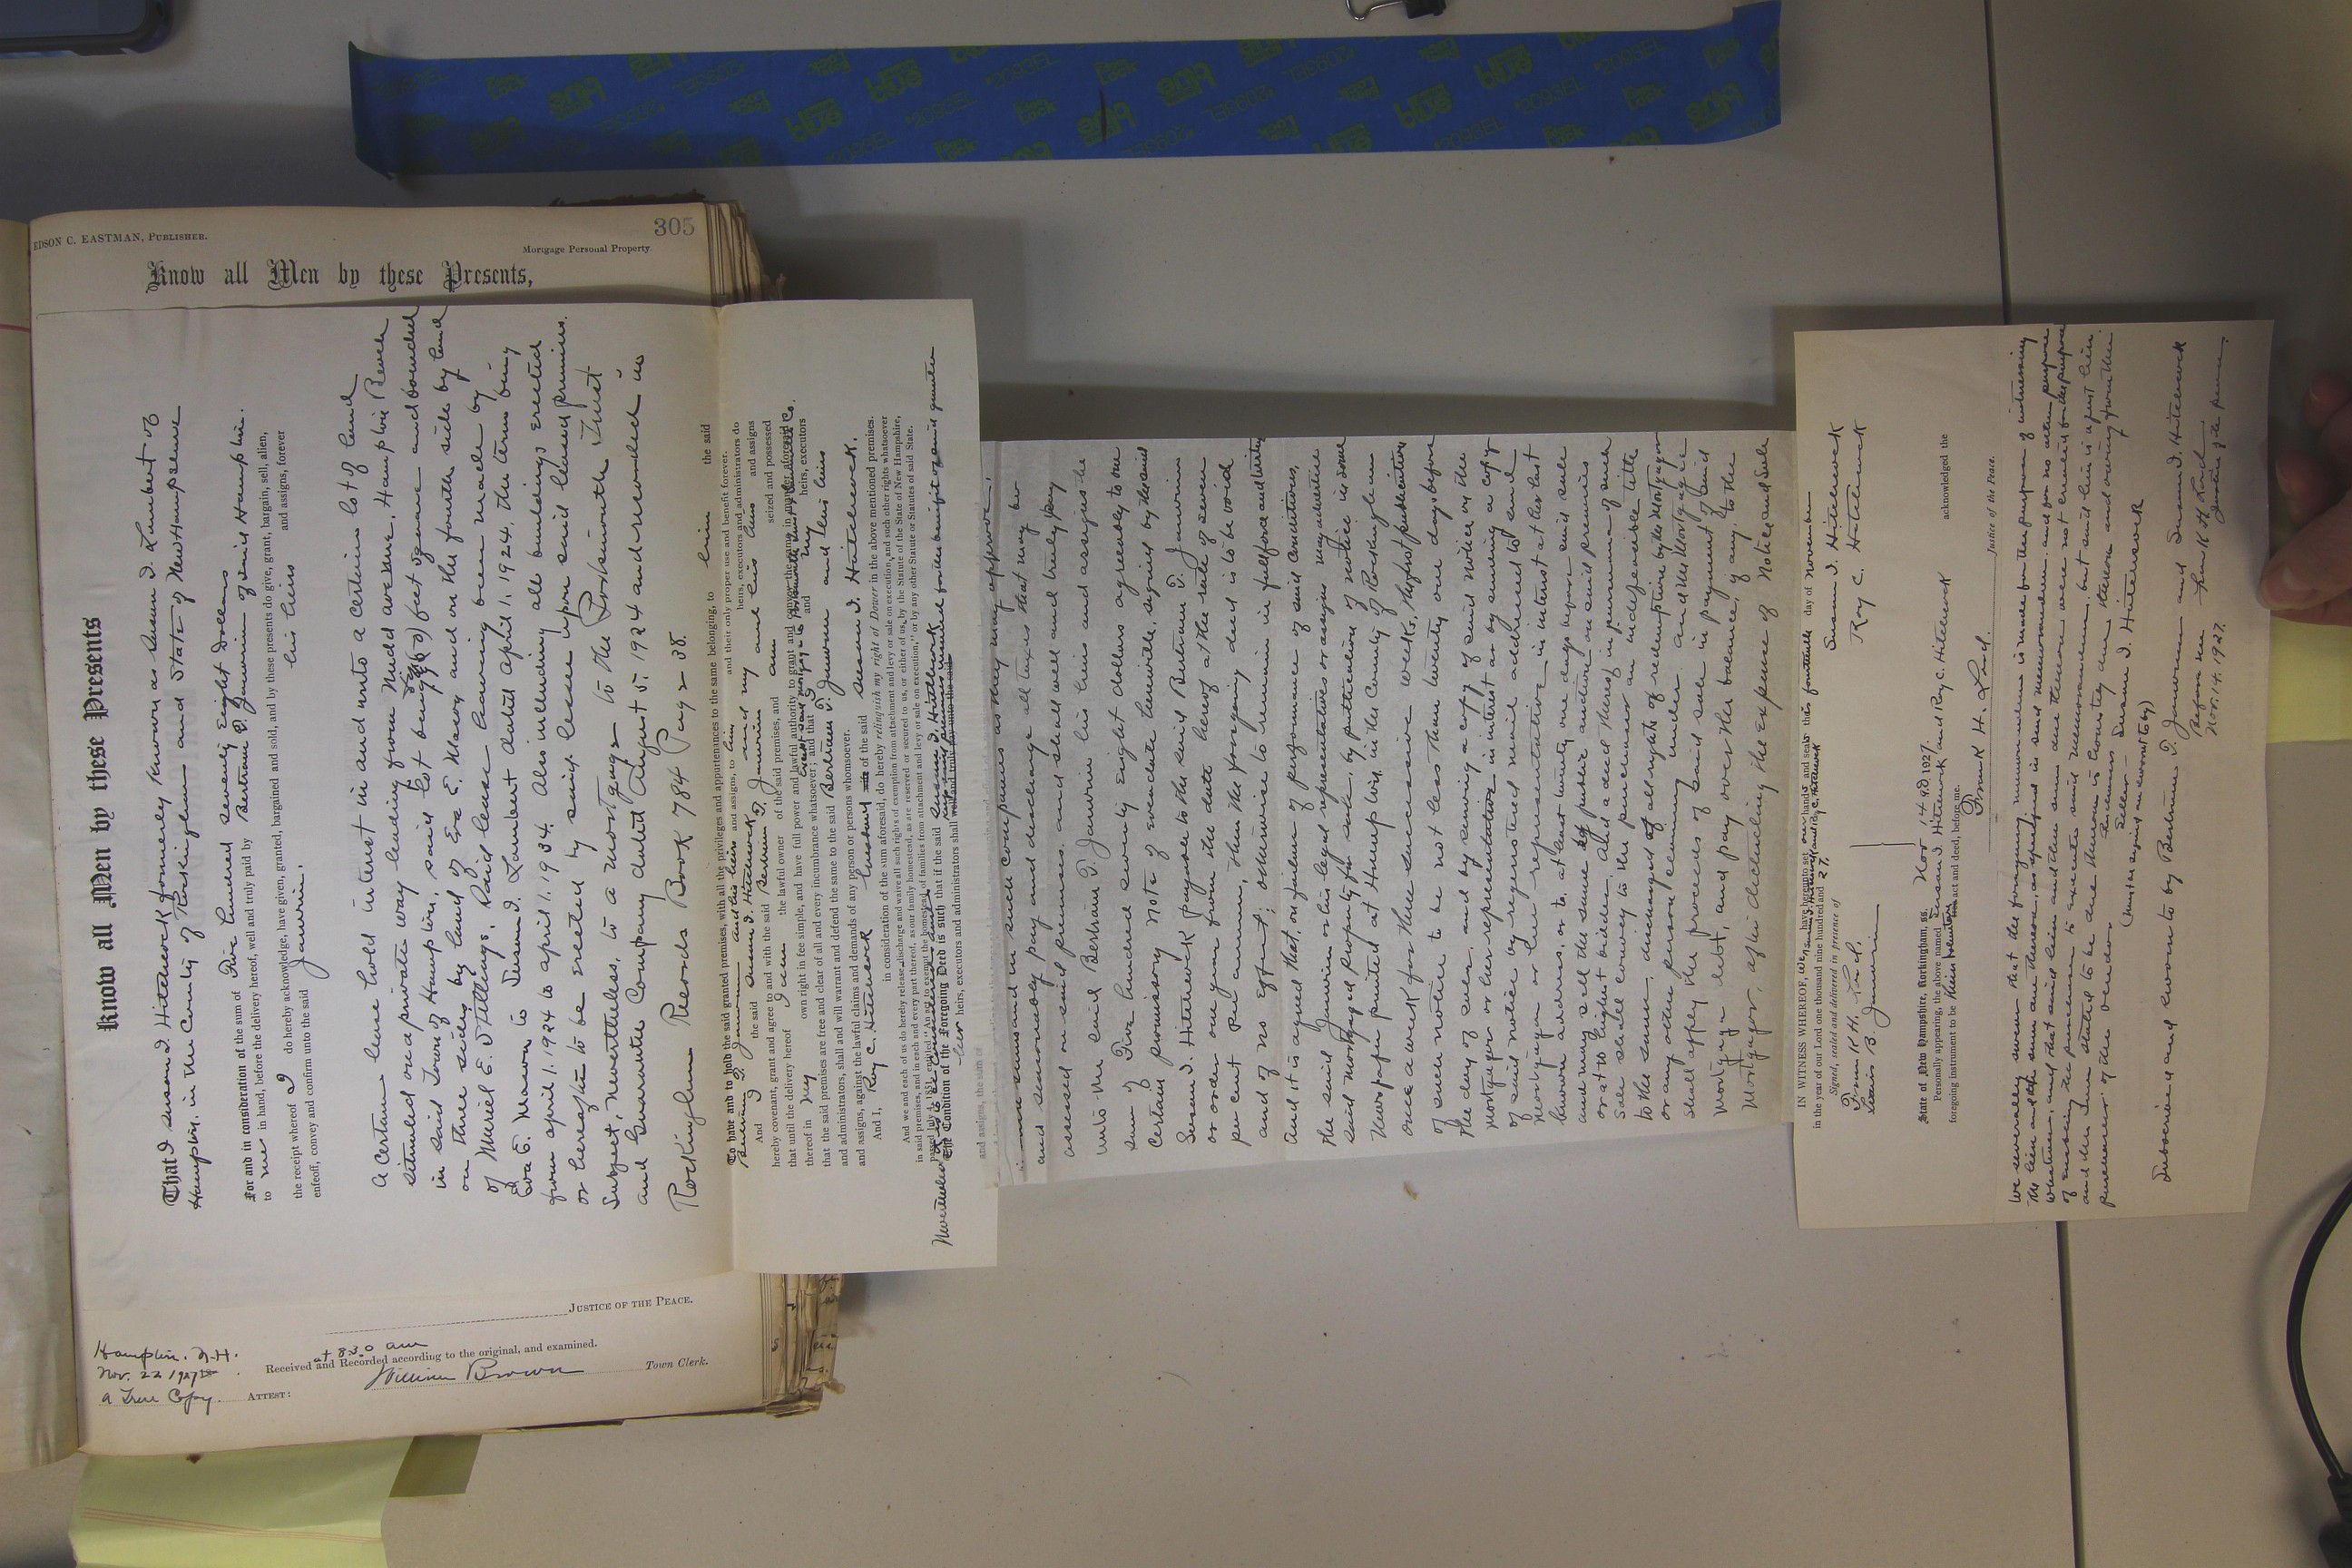 EDSON C. EASTMAN, PUBLISHER.
305
Mortgage Personal Property.
Know all Men by these Presents,
Know all Men by these Presents
That I Susan I. Hitchcock formerly known as Susan I. Lambert of
Hampton, in the County of Rockingham and State of New Hampshire
For and in consideration of the sum of Five hundred seventy Eight Dollars
to me in hand, before the delivery hereof, well and truly paid by Bertram T. Janvrin of said Hampton.
the receipt whereof I do hereby acknowledge, have given, granted, bargained and sold, and by these presents do give, grant, bargain, sell, alien,
enfeoff, convey and confirm unto the said Janvrin, his heirs and assigns, forever
A certain lease hold interest in and onto a certain lot of land
situated on a private way leading from Nudd avenue, Hampton Beach
in said Town of Hampton, said lot being feet square and bounded
on three sides by land of Eva E. Mason and on the fourth side by land
of Muriel E. Stellings. Said lease having been made by
Eva E. Mason to Susan I. Lambert dated April 1, 1924, the term being
from April 1, 1924 to April 1, 1934. Also including all buildings erected
or hereafter to be erected by said lessee upon said leased premises.
Subject, nevertheless, to a mortgage to the Portsmouth Trust
and Guarantee Company dated August 5, 1924 and recorded in
Rockingham Records Book 784 Page 38.
To have and to hold the said granted premises, with all the privileges and appurtenances to the same belonging, to him the said
Bertram T. Janvrin and his heirs and assigns, to him and their only proper use and benefit forever.
And I the said Susan I. Hitchcock and my heirs, executors and administrators do
hereby covenant, grant and agree to and with the said Bertram T. Janvrin and his heirs and assigns
that until the delivery hereof I am the lawful owner of the said premises, and am seized and possessed
thereof in my own right in fee simple, and have full power and lawful authority to grant and convey the same in manner aforesaid
that the said premises are free and clear of all and every incumbrance whatsoever; and that I and my heirs, executors
Except said mortgage to Portsmouth Trust Co.
and administrators, shall and will warrant and defend the same to the said Bertram T. Janvrin and his heirs
and assigns, against the lawful claims and demands of any person or persons whomsoever.
And I, Roy C. Hitchcock husband of the said Susan I. Hitchcock,
in consideration of the sum aforesaid, do hereby relinquish my right of Dower in the above mentioned premises.
And we and each of us do hereby release, discharge and waive all such rights of exemption from attachment and levy or sale on execution, and such other rights whatsoever
in said premises, and in each and every part thereof, as our family homestead, as are reserved or secured to us, or either of us, by the Statute of the State of New Hampshire,
passed July 4, 1851, entitled "An act to exempt the homestead of families from attachment and levy or sale on execution," or by any other Statute or Statutes of said State.
The Condition of the Foregoing Deed is such that if the said Susan I. Hitchcock
her heirs, executors and administrators shall
and assigns, the sum of
sums and in such companies as they may approve,
and seasonably pay and discharge all taxes that may be
assessed on said premises, and shall well and truly pay
unto the said Bertram T. Janvrin his heirs and assigns the
sum of Five hundred seventy Eight dollars agreeably to one
certain promissory note of even date herewith, signed by the said
Susan I. Hitchcock payable to the said Bertram T. Janvrin
or order one year from the date hereof at the rate of seven
per cent per annum, then the foregoing deed is to be void
and of no effect; otherwise to remain in full force and virtue
And it is agreed that, on failure of performance of said conditions,
the said Janvrin or his legal representatives or assigns may advertise
said mortgaged property for sale, by publication of notice in some
newspaper printed at Hampton, in the County of Rockingham
once a week for three successive weeks, the first publication
of such notice to be not less than twenty one days before
the day of sale, and by serving a copy of said notice on the
mortgagor or her representatives in interest or by sending a copy
of said notice by registered mail addressed to said
mortgagor or her representative in interest at her last
known address, or to, at least twenty one days before said sale
and may sell the same at public auction on said premises
or at to highest bidder. And a deed thereof in pursuance of such
sale shall convey to the purchaser an indefeasible title
to the same, discharged of all rights of redemption by the Mortgagor
or any other person claiming under. And the Mortgagee
shall apply the proceeds of said sale in payment of said
mortgage debt, and pay over the balance, if any, to the
Mortgagor, after deducting the expense of Notice and Sale
IN WITNESS WHEREOF, we, have hereunto set our hands and seals this fourteenth day of November
in the year of our Lord one thousand nine hundred and 27.
Signed, sealed and delivered in presence of
Frank H. Lord.
Lewis B. Janvrin
Susan I. Hitchcock
Roy C. Hitchcock
State of New Hampshire, Rockingham, ss. Nov 14 AD 1927.
Personally appearing, the above named Susan I. Hitchcock and Roy C. Hitchcock acknowledged the
foregoing instrument to be their voluntary act and deed, before me.
Frank H. Lord. Justice of the Peace.
We severally swear that the foregoing memorandum is made for the purpose of witnessing
the lien and the sum due thereon, as specified in said memorandum, and for no other purpose
whatever, and that said lien and the sum due thereon were not created for the purpose
of enabling the purchaser to execute said memorandum, but said lien is a just lien
and the sum stated to be due thereon is honestly due thereon and owing from the
purchaser to the vendor.
Seller – Susan I. Hitchcock
(Must be signed and sworn to by)
Subscribed and sworn to by Bertram T. Janvrin and Susan I. Hitchcock
Before me Frank H. Lord
Nov. 14. 1927. Justice of the peace.
JUSTICE OF THE PEACE.
Hampton, N.H.
Nov. 22 1927
at 8.30 am
Received and Recorded according to the original, and examined.
A True Copy.
ATTEST: William Brown Town Clerk.